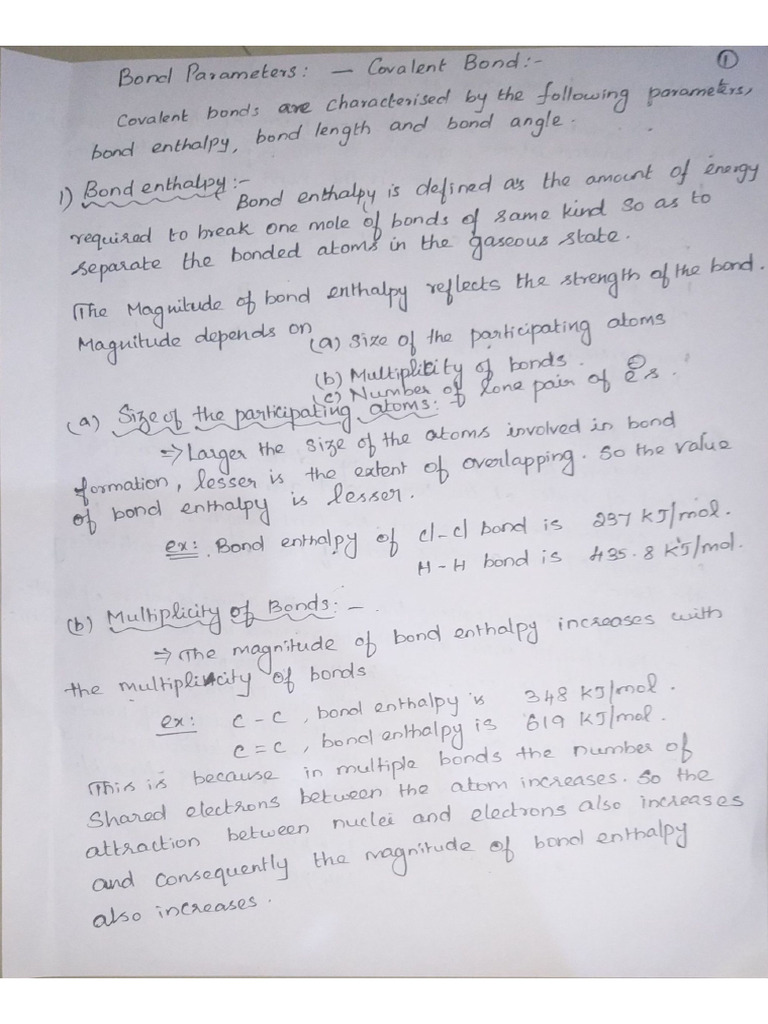 Bond Parameters: — Covalent Bond:-
①
Covalent bonds are characterised by the following parameters,
bond enthalpy, bond length and bond angle.
1) Bond enthalpy:-
Bond enthalpy is defined as the amount of energy
required to break one mole of bonds of same kind so as to
separate the bonded atoms in the gaseous state.
The Magnitude of bond enthalpy reflects the strength of the bond.
Magnitude depends on
(a) Size of the participating atoms
(b) Multiplicity of bonds.
(c) Number of lone pair of e⊖s.
(a) Size of the participating atoms:-
⇒ Larger the size of the atoms involved in bond
formation, lesser is the extent of overlapping. So the value
of bond enthalpy is lesser.
ex: Bond enthalpy of Cl-Cl bond is 237 KJ/mol.
H-H bond is 435.8 KJ/mol.
(b) Multiplicity of Bonds: -
⇒ The magnitude of bond enthalpy increases with
the multiplicity of bonds
ex: C-C, bond enthalpy is 348 KJ/mol.
C=C, bond enthalpy is 619 KJ/mol.
This is because in multiple bonds the number of
Shared electrons between the atom increases. So the
attraction between nuclei and electrons also increases
and consequently the magnitude of bond enthalpy
also increases.